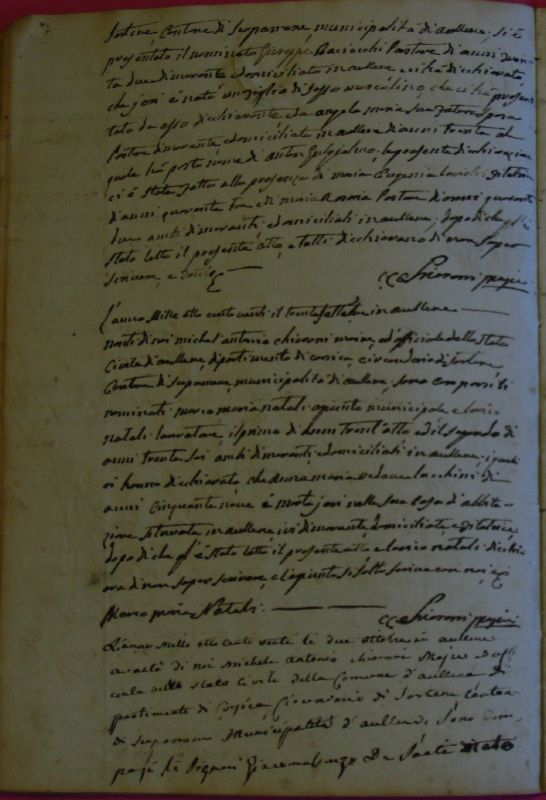 Sartene, Cantone di Scopamene, municipalità di aullene. Si è
presentato il nominato Giuseppe Baciocchi Pastore di anni quaran
ta due dimorante e domiciliato in aullene e ci hà dichiarato
che jeri è nato un figlio di sesso mascolino che ci hà presen
tato da esso dichiarante e da angela maria sua
Pastore dimorante e domiciliato in aullene di anni trenta al
quale hà posto nome di anton Guglielmo, la presente dichiarazione
ci è stata fatta alla presenza di maria Eugenia filatrice
d'anni quaranta tre e di maria Pastore di anni quaranta
due ambi dimoranti e domiciliati in aullene, dopo di che gli è
stato letto il presente atto, e tutti dichiarano di non saper
scrivere, e
Chiaroni maire
L'anno Mille otto cento venti il trenta settebre in aullene
nanti di noi michel'antonio chiaroni maire, ed officiale dello stato
Civile di aullene, dipartimento di corsica, circondario di sartene,
Cantone di Scopamene, municipalità di aullene, sono comparsi li
nominati marco maria natali agiunto municipale e
natali lauratore, il primo di anni trent'otto ed il segondo di
anni trenta sei ambi dimoranti e domiciliati in aullene, i quali
ci hanno dichiarato che anna maria vedova lucchini di
anni cinquanta nove è morta jeri nella sua casa d'abita-
zione situata in aullene, ivi dimorante, domiciliata, e filatrice
dopo di che gl'è stato letto il presente atto e natali dichi
ara di non saper scrivere, e l'agiunto si è sotto scritto con noi
Marco maria Natali.
Chiaroni maire
L'anno Mille otto cento venti li due ottobre in aullene
avanti di noi Michele antonio chiaroni Maire ed offi
ciale dello stato Civile della Comune d'aullene di
partimento di Corsica Circondario di Sartene Canton
di Scopamene Municipalità d'aullene, Sono Com-
parsi li Signori Giacomo De Santi Nato